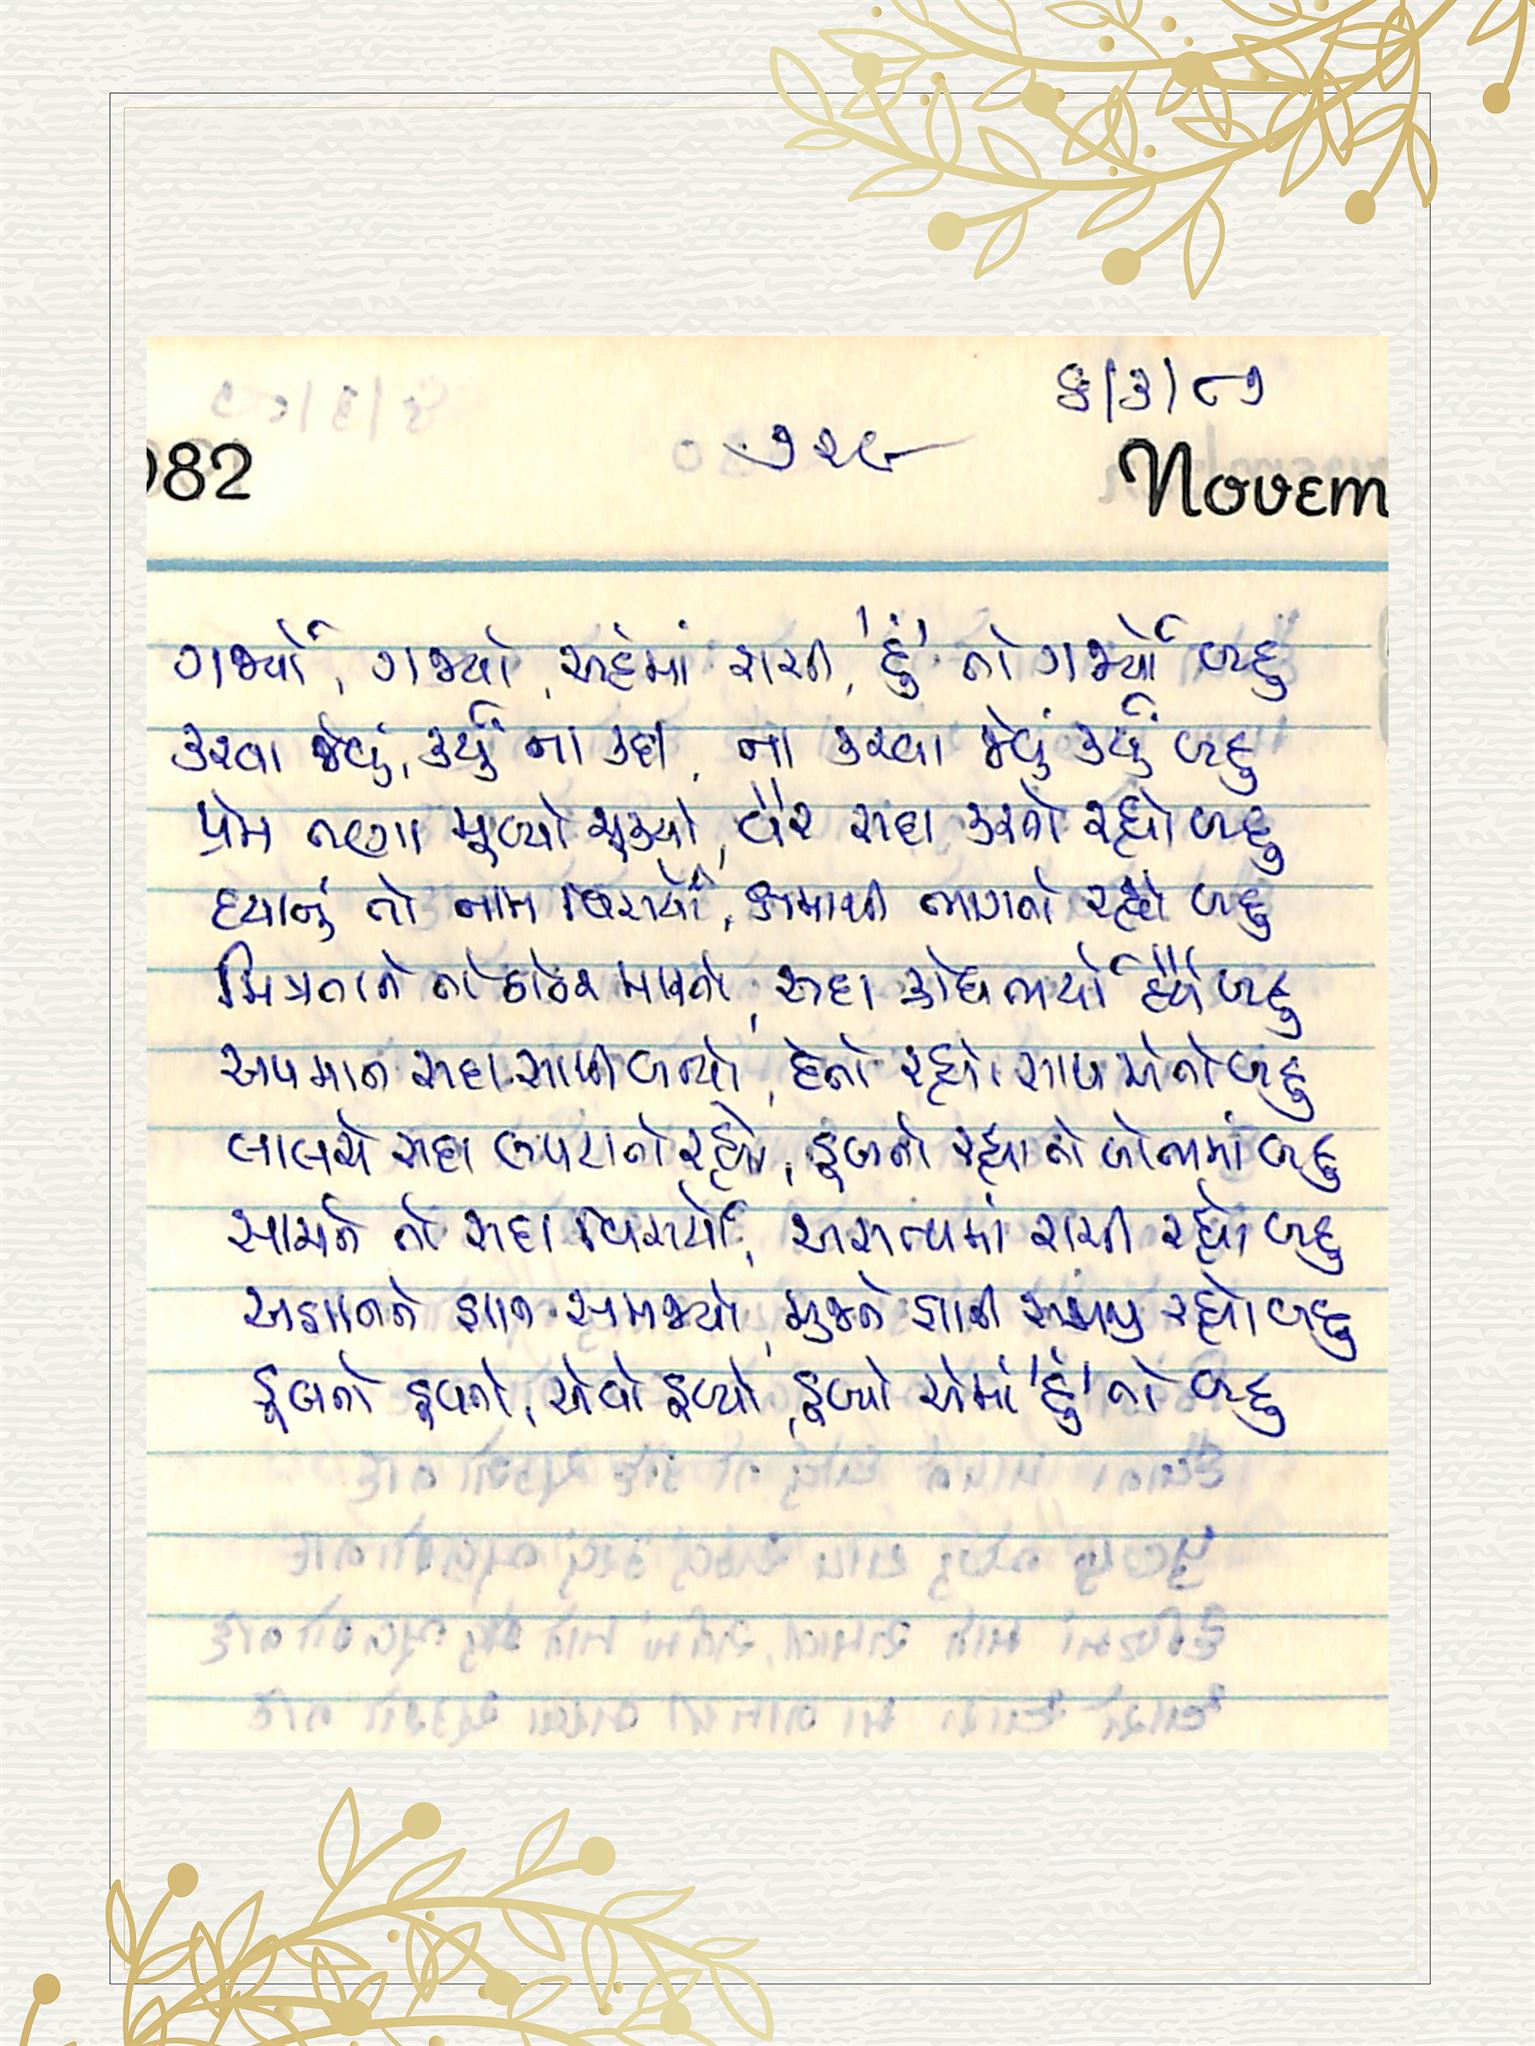 ૬/૩/૮૭
૭૨૯
982
Novem
ગર્જ્યો, ગર્જ્યો, અહંમાં રાચી, 'હું' તો ગર્જ્યો બહુ
કરવા જેવું, કર્યું ના કદી, ના કરવા જેવું કર્યું બહુ
પ્રેમ તણા મૂલ્યો ચૂક્યો, વૈર સદા કરતો રહ્યો બહુ
દયાનું તો નામ વિસર્યો, ક્ષમાથી ભાગતો રહ્યો બહુ
મિત્રતાને તો ઠોકર મારતો, સદા ક્રોધ ભર્યો હૈયે બહુ
અપમાન સદા સાથી બન્યો, દેતો રહ્યો સાથ એનો બહુ
લાલચે સદા લપટાતો રહ્યો, ડૂબતો રહ્યો તો લોભમાં બહુ
સત્યને તો સદા વિસર્યો, અસત્યમાં રાચી રહ્યો બહુ
અજ્ઞાનને જ્ઞાન સમજ્યો, મુજને જ્ઞાની સમજી રહ્યો બહુ
ડૂબતો ડૂબતો, એવો ડૂબ્યો, ડૂબ્યો એમાં 'હું' તો બહુ